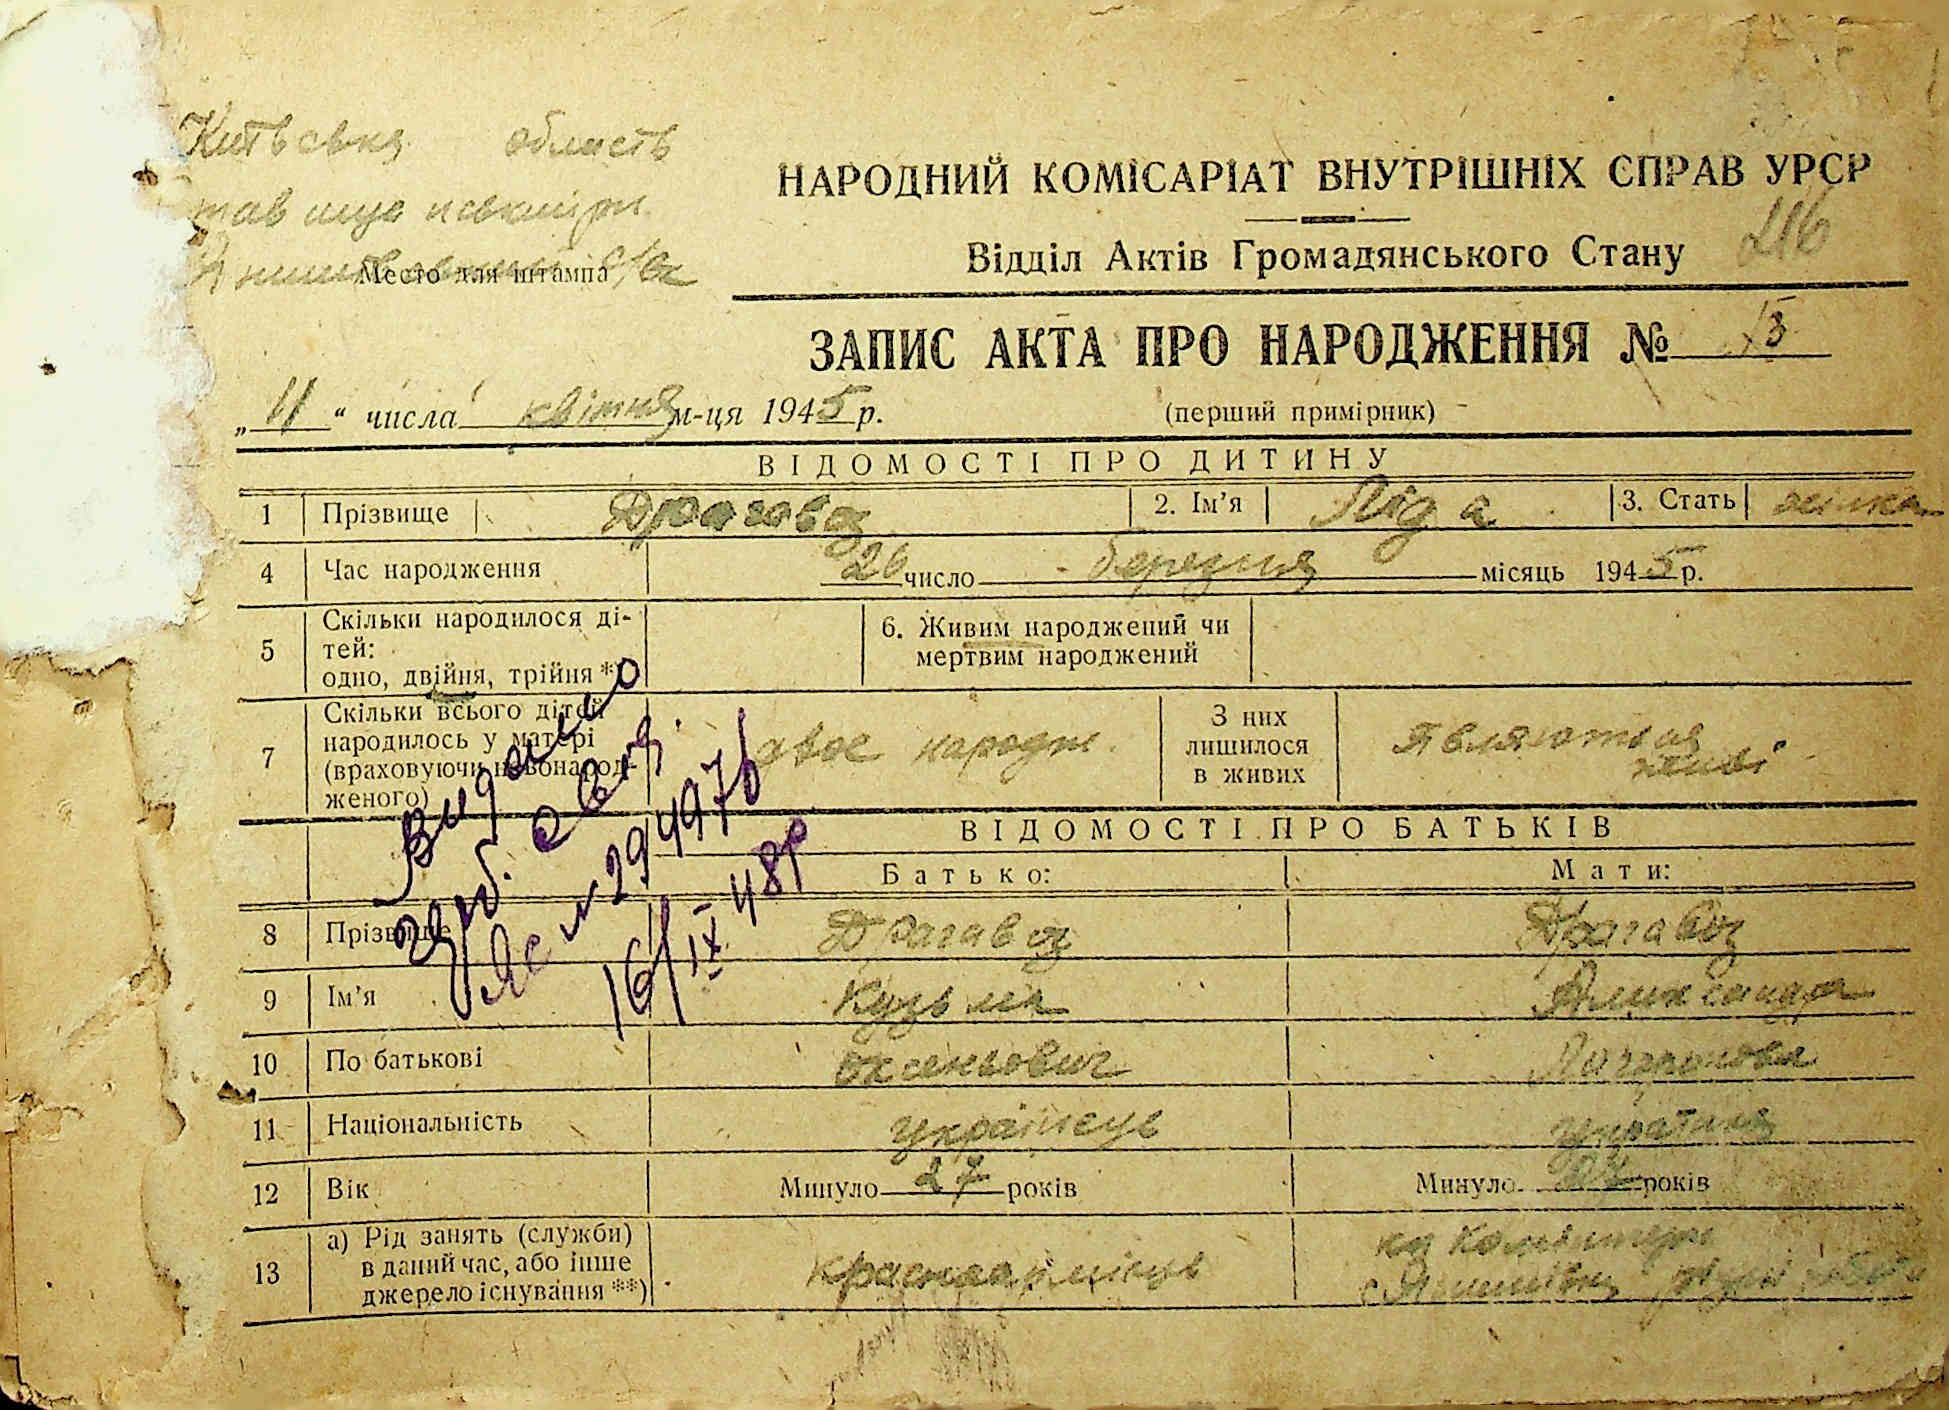 Київська область
НАРОДНИЙ КОМІСАРІАТ ВНУТРІШНІХ СПРАВ УРСР
216
Відділ Актів Громадянського Стану
Место для штампа
ЗАПИС АКТА ПРО НАРОДЖЕННЯ № 13
„11“ числа квітня м-ця 1945 р. (перший примірник)
ВІДОМОСТІ ПРО ДИТИНУ
1 Прізвище Драговоз 2. Ім’я Ліда 3. Стать жіноча
4 Час народження 26 число березня місяць 1945 р.
5 Скільки народилося ді-
тей:
одно, двійня, трійня *)
6. Живим народжений чи
мертвим народжений
7 Скільки всього дітей
народилось у матері
(враховуючи новонарод-
женого)
двоє народж.
З них
лишилося
в живих
являються
живі
Видано
дуб. свід.
ЯС № 294976
16/IX 48р
ВІДОМОСТІ ПРО БАТЬКІВ
Батько: Мати:
8 Прізвище Драгавоз Драгавоз
9 Ім’я Кузьма Александра
10 По батькові Оксеньович
11 Національність українець українка
12 Вік Минуло 27 років Минуло років
13 а) Рід занять (службы)
в даний час, або інше
джерело існування **)
красноармієць